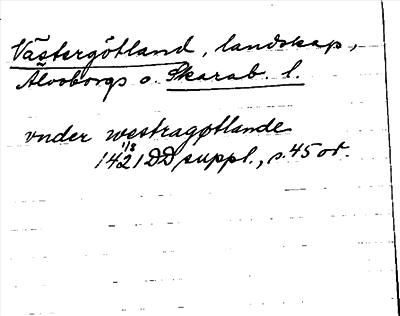 Västergötland, landskap,
Älvsborgs o. Skarab. l.
vnder westragøtlande
1/8
1421 DD suppl., s. 45 or.